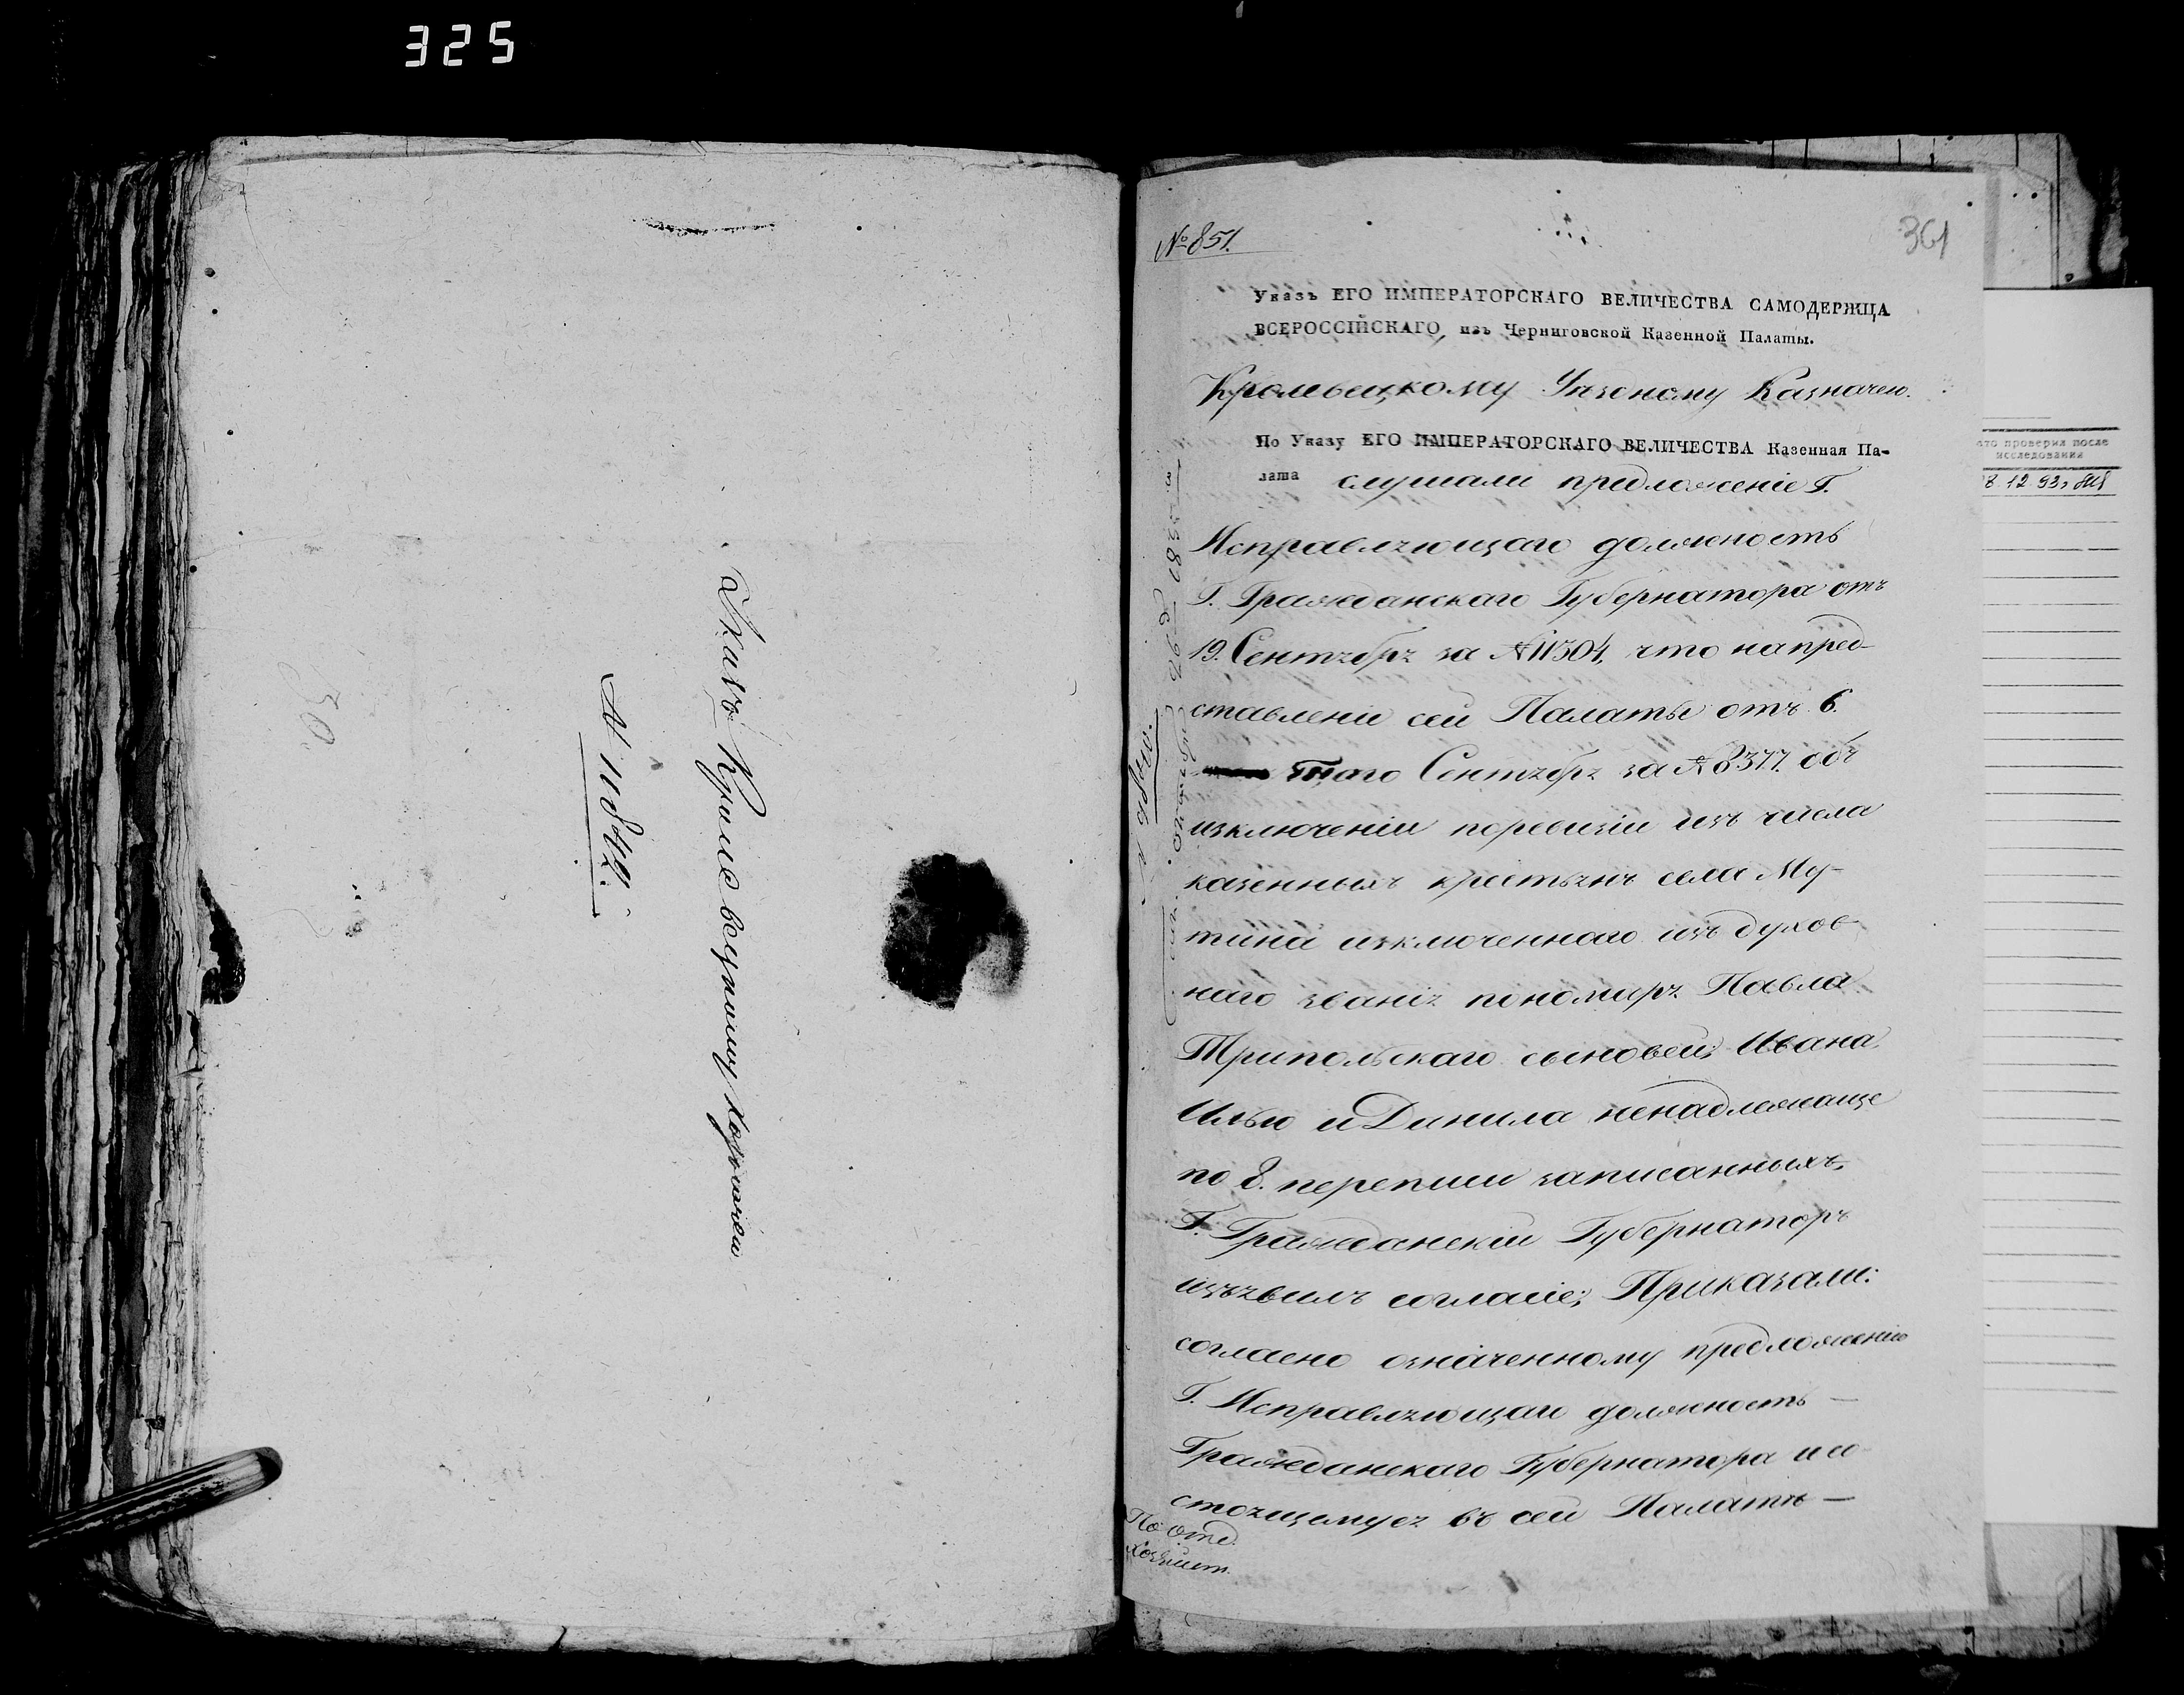 325
Указъ Кролевецкому Казначею
№ 11842.
30.
№ 851.
361
Указъ ЕГО ИМПЕРАТОРСКАГО ВЕЛИЧЕСТВА САМОДЕРЖЦА
ВСЕРОССІЙСКАГО, изъ Черниговской Казенной Палаты.
Кролевецкому Уѣздному Казначею.
По Указу ЕГО ИМПЕРАТОРСКАГО ВЕЛИЧЕСТВА Казенная Па-
лата слушали предложеніе Г.
Исправляющаго должность
Г. Гражданскаго Губернатора отъ
19. Сентября за № 11504, что на пред-
ставленіе сей Палаты отъ 6.
того Сентября за № 8377. объ
изключеніи поревизіи изъ числа
казенныхъ крестьянъ села Му-
тина изключеннаго изъ духов-
наго званія пономаря Павла
Трипольскаго сыновей: Ивана,
Илью и Данила ненадлежаще
по 8. переписи записанныхъ,
Г. Гражданскій Губернаторъ
изъявилъ согласіе; Приказали:
согласно означенному предложенію
Г. Исправляющаго должность —
Гражданскаго Губернатора и со-
стоящемуся въ сей Палатѣ —
По Отд.
Хозяйст.
кто проверил после
исследования
8.12.93г